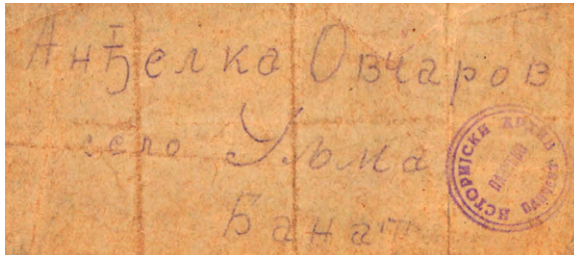 Анђелка Овчаров
село Уљма
Банат
ИСТОРИЈСКИ АРХИВ
ПАНЧЕВО